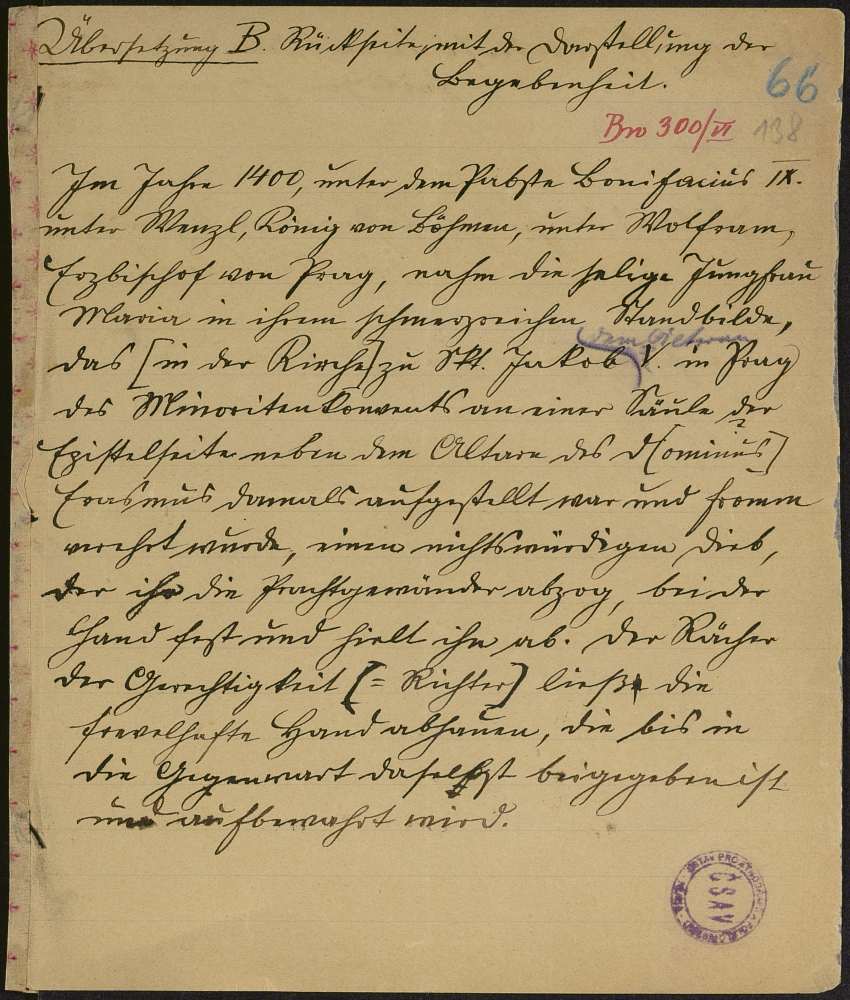 Übersetzung B. Rückseite, mit der Darstellung der
Begebenheit.
66
Bw 300/VI 138
Im Jahre 1400, unter dem Pabste Bonifacius IX.
unter Wenzl, König von Böhmen, unter Wolfram,
Erzbischof von Prag, nahm die selige Jungfrau
Maria in ihrem schmerzreichen Standbilde,
das [in der Kirche] zu Skt. Jakob V. in Prag
des Minoritenkonvents an einer Säule der
Epistelseite neben dem Altare des D[ominus]
Erasmus damals aufgestellt war und fromm
verehrt wurde, einen nichtswürdigen Dieb,
der ihr die Prachtgewänder abzog, bei der
Hand fest und hielt ihn ab. Der Rächer
der Gerechtigkeit [= Richter] ließ die
frevelhafte Hand abhauen, die bis in
die Gegenwart daselbst beigegeben ist
und aufbewahrt wird.
ČSAV